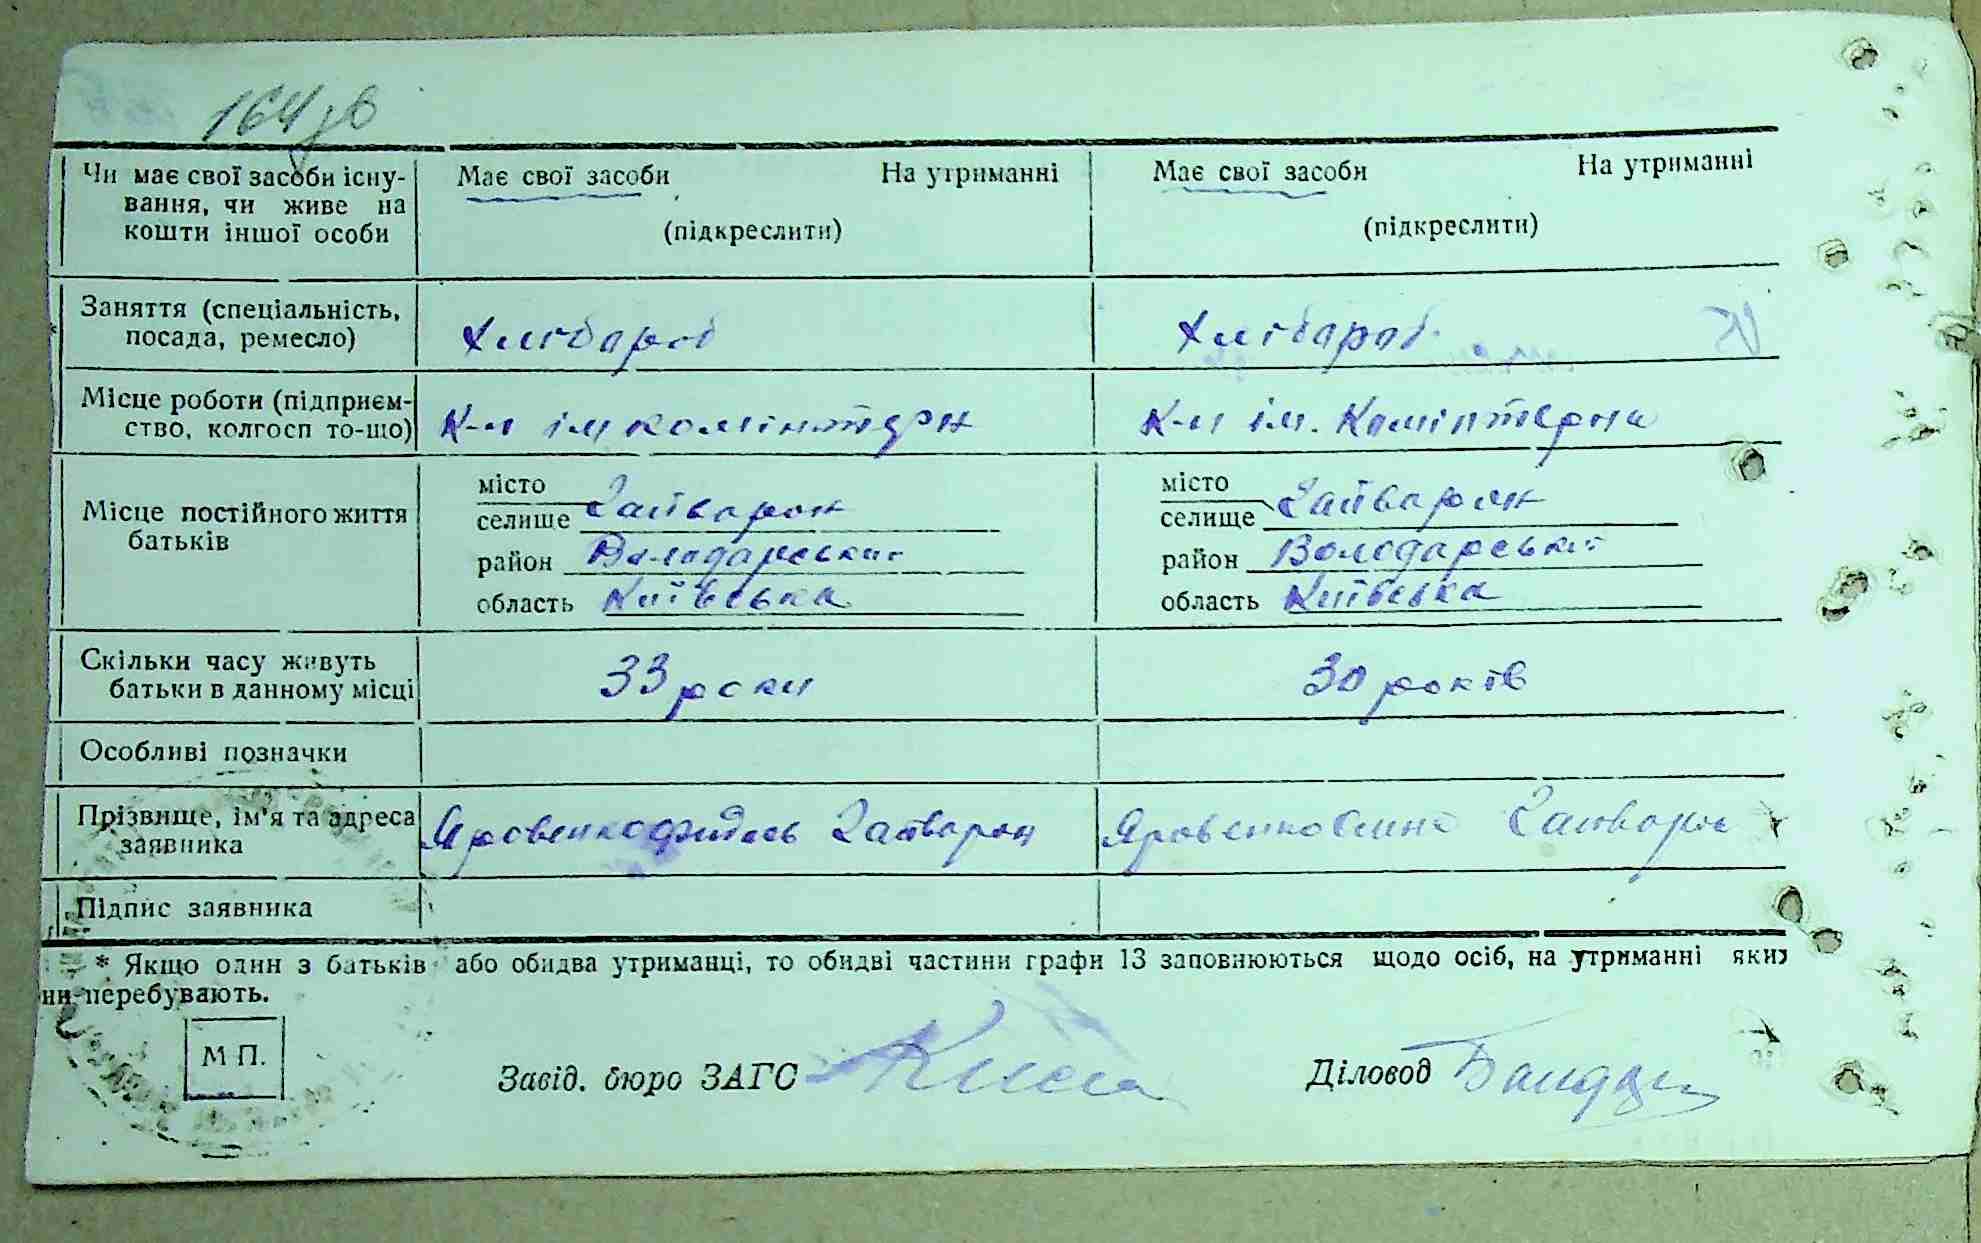 164 зв
Чи має свої засоби існу-
вання, чи живе на
кошти іншої особи
Має свої засоби На утриманні
(підкреслити)
Має свої засоби На утриманні
(підкреслити)
Заняття (спеціальність,
посада, ремесло)
Хлібороб
Хлібороб
Місце роботи (підприєм-
ство, колгосп то-що)
К-п ім комінтерн
К-п ім. Комінтерна
Місце постійного життя
батьків
місто
селище Гайворон
район Володарський
область Київська
місто
селище Гайворон
район Володарський
область Київська
Скільки часу живуть
батьки в данному місці
33 роки
30 років
Особливі позначки
Прізвище, ім'я та адреса
заявника
Яровенко Гайворон
Яровенко Гайворон
Підпис заявника
* Якщо один з батьків або обидва утриманці, то обидві частини графи 13 заповнюються щодо осіб, на утриманні яких
ни перебувають.
М П.
Завід. бюро ЗАГС
Діловод